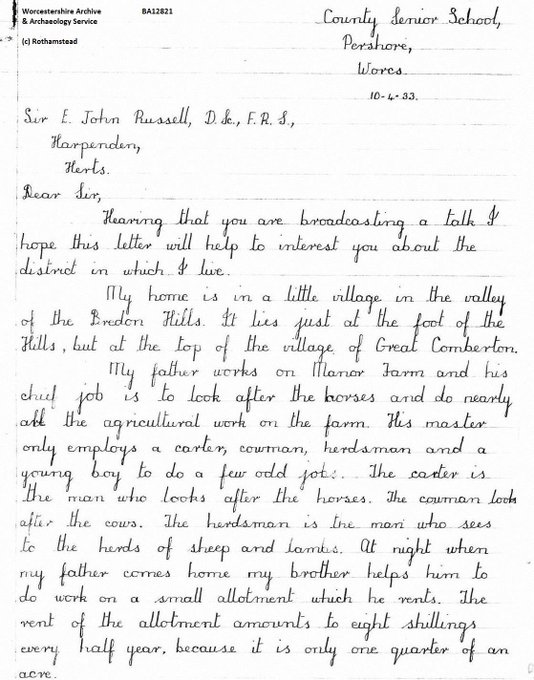 Worcestershire Archive BA12821
& Archaeology Service
(c) Rothamstead
County Senior School,
Pershore,
Worcs.
10-4-33.
Sir E. John Russell, D.Sc., F.R.S.,
Harpenden,
Herts.
Dear Sir,
Hearing that you are broadcasting a talk I
hope this letter will help to interest you about the
district in which I live.
My home is in a little village in the valley
of the Bredon Hills. It lies just at the foot of the
Hills, but at the top of the village of Great Comberton.
My father works on Manor Farm and his
chief job is to look after the horses and do nearly
all the agricultural work on the farm. His master
only employs a carter, cowman, herdsman and a
young boy to do a few odd jobs. The carter is
the man who looks after the horses. The cowman looks
after the cows. The herdsman is the man who sees
to the herds of sheep and lambs. At night when
my father comes home my brother helps him to
do work on a small allotment which he rents. The
rent of the allotment amounts to eight shillings
every half year, because it is only one quarter of an
acre.